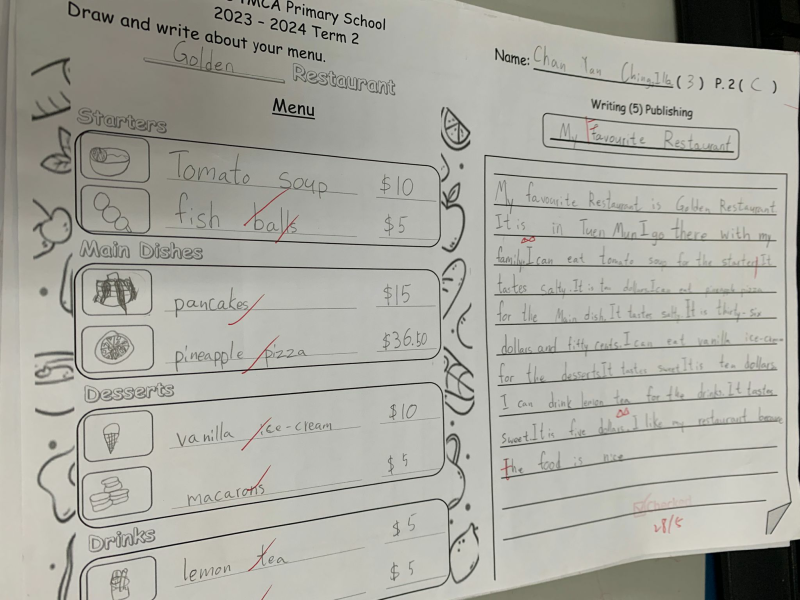 YMCA Primary School
2023 - 2024 Term 2
Draw and write about your menu.
Golden Restaurant
Menu
Starters
Tomato soup $10
fish balls $5
Main Dishes
pancakes $15
pineapple pizza $36.50
Desserts
vanilla ice-cream $10
macarons $5
Drinks
lemon tea $5
$5
Name: Chan Yan Ching (3) P.2(C)
Writing (5) Publishing
My Favourite Restaurant
My favourite Restaurant is Golden Restaurant
It is in Tuen Mun I go there with my
family. I can eat tomato soup for the starter It
tastes salty. It is ten dollars. I can eat pineapple pizza
for the Main dish. It tastes salty. It is thirty-six
dollars and fifty cents. I can eat vanilla ice-cream
for the desserts. It tastes sweet. It is ten dollars.
I can drink lemon tea for the drinks. It tastes
sweet. It is five dollars. I like my restaurant because
the food is nice
28/5